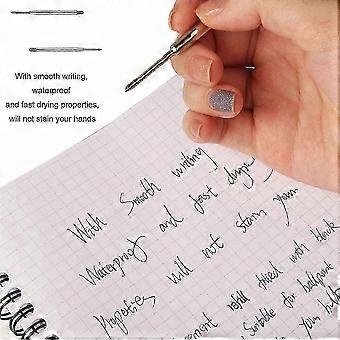 With smooth writing,
waterproof
and fast drying properties,
will not stain your hands
With Smooth writing
Waterproof and fast drying
Propeties will not stain your
refill fused with black
Suitable for ballpoint
your